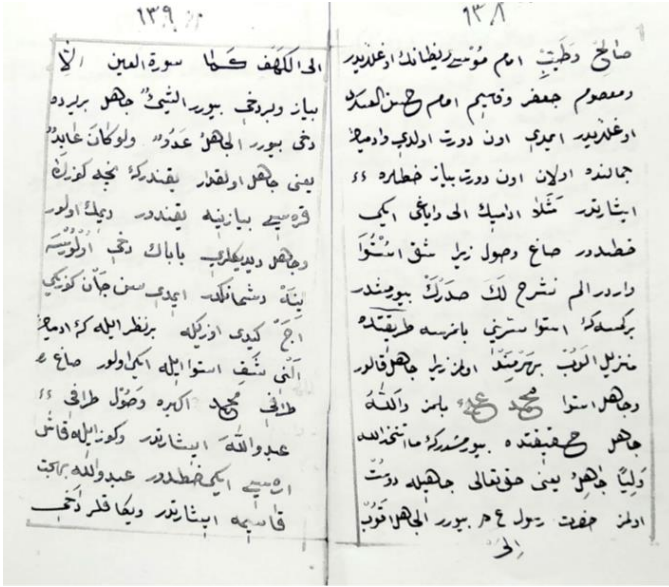 ١٣٨
صالح وطيّب امام موسى ريطانك اوغللريدر
ومعصوم جعفر وقاسم امام حسن العسكرى
اوغللريدر ايمدى اون دورت اولدى وادميك
جمالنده اولان اون دورت بياز خطلره
ايشارتدر مثلا ادميك الى داياغى ايكى
خطدور صاغ وصول زيرا شق استوا
واردور الم نشرح لك صدرك بيورمشدر
بركمسه كه استوا سترينى بلمزسه طريقتده
منزيل الوب بهرمند اولمز زيرا جاهل قالور
وجاهل استوا محمد على بلمز والله
جاهل حقيقتده بيورمشدركه ما اتخذ الله
وليًّا جاهل يعنى حق تعالى جاهيله دوست
اولمز حضرت رسول ع م بيورر الجاهل اقرب
الى
١٣٩
الى الكهف كما سورة العين الا
بياز ولردخى بيورر الشىء جاهل بريرده
دخى بيورر الجاهل عدو ولو كان عابد
يعنى جاهل اولقدر يقندركه نجه كوزك
قره سى بيازينه يقندور ديمك اولور
وجاهل ديديكلرى باباك دخى اولورسه
ينه دشمانكدر ايمدى سن جان كوزكى
اچ كيدى اوركله برنظر ايله كه ادميك
النى شق استوا ايله ايكى اولور صاغ
طرافى محمد اكبره وصول طرافى
عبدوالله ايشارتدر وكوز ايله قاش
اره سى ايكى خطدور عبدوالله بهجت
قاسمه ايشارتدر ويكا قلر دخى